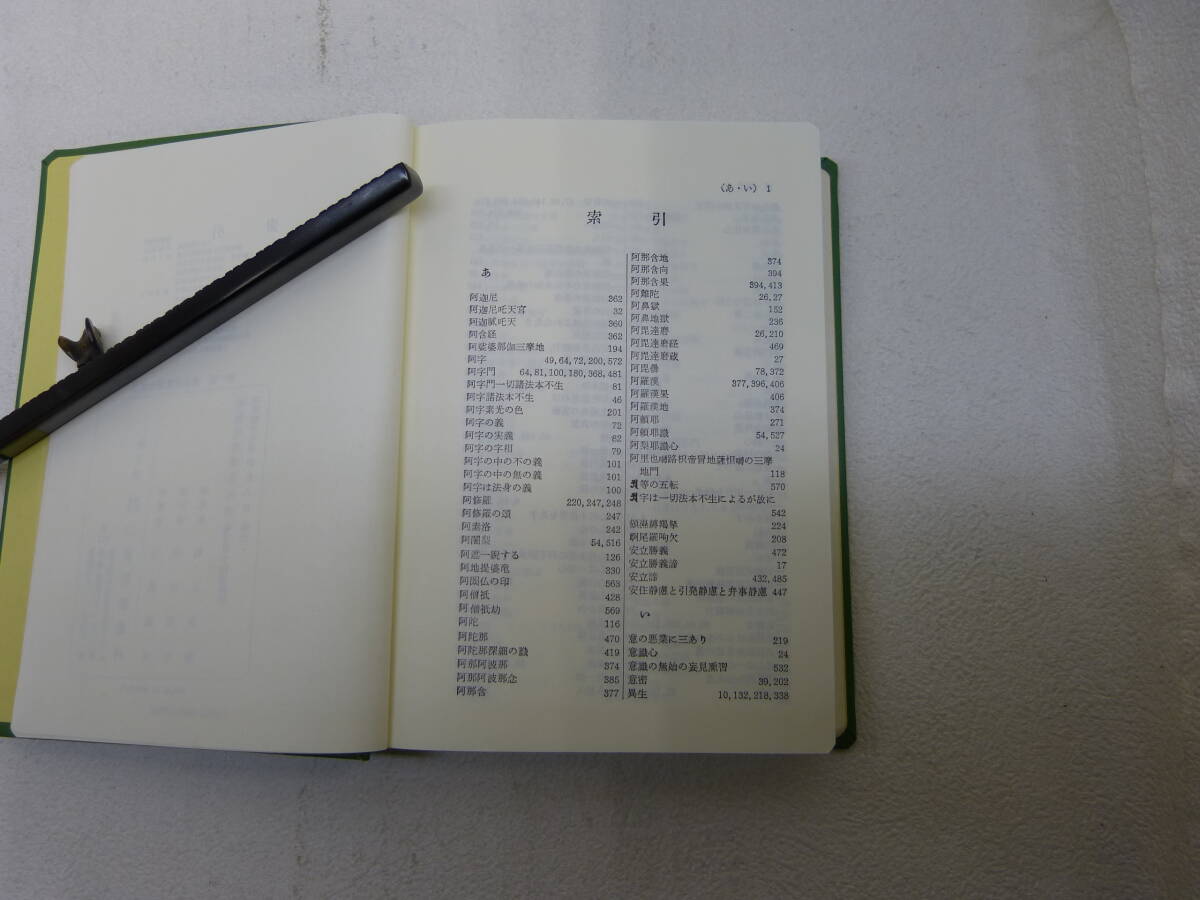 （あ・い） 1
索引
あ
阿迦尼 362
阿迦尼吒天宮 32
阿迦膩吒天 360
阿含経 362
阿娑婆那伽三摩地 194
阿字 49,64,72,200,572
阿字門 64,81,100,180,368,481
阿字門一切諸法本不生 81
阿字諸法本不生 46
阿字素光の色 201
阿字の義 72
阿字の実義 62
阿字の字相 79
阿字の中の不の義 101
阿字の中の無の義 101
阿字は法身の義 100
阿修羅 220,247,248
阿修羅の頌 247
阿素洛 242
阿闍梨 54,516
阿遮一睨する 126
阿地提婆竜 330
阿閦仏の印 563
阿僧祇 428
阿僧祇劫 569
阿陀 116
阿陀那 470
阿陀那深細の識 419
阿那阿波那 374
阿那阿波那念 385
阿那含 377
阿那含地 374
阿那含向 394
阿那含果 394,413
阿難陀 26,27
阿鼻獄 152
阿鼻地獄 236
阿毘達磨 26,210
阿毘達磨経 469
阿毘達磨蔵 27
阿毘曇 78,372
阿羅漢 377,396,406
阿羅漢果 406
阿羅漢地 374
阿頼耶 271
阿頼耶識 54,527
阿梨耶識心 24
阿里也嚩路枳帝冒地薩怛嚩の三摩
地門 118
等の五転 570
字は一切法本不生によるが故に
542
224
尾羅吽欠 208
安立勝義 472
安立勝義諦 17
安立諦 432,485
安住静慮と引発静慮と弁事静慮 447
い
意の悪業に三あり 219
意識心 24
意識の無始の妄見熏習 532
意密 39,202
異生 10,132,218,338